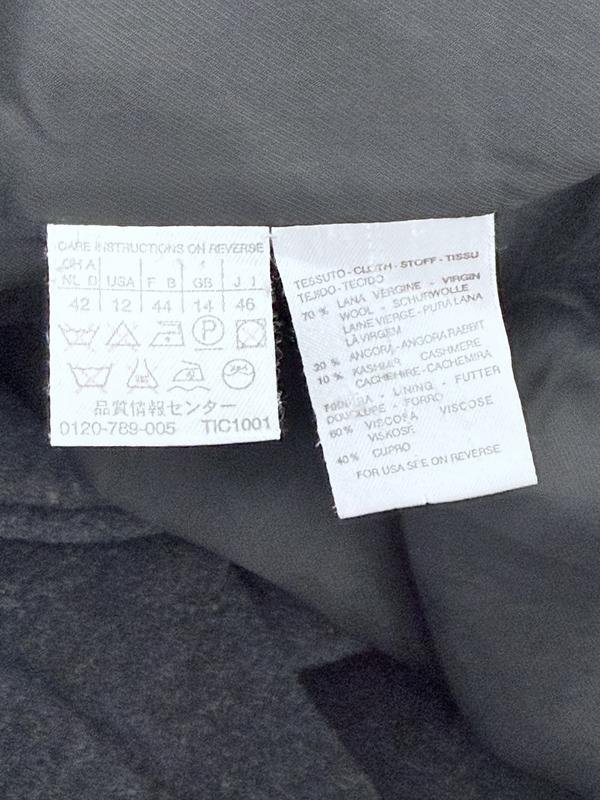 CARE INSTRUCTIONS ON REVERSE
CH A
NL D USA F B GB J I
42 12 44 14 46
P
品質情報センター
0120-789-005 TIC1001
TESSUTO - CLOTH - STOFF - TISSU
TEJIDO - TECIDO
70 % LANA VERGINE - VIRGIN
WOOL - SCHURWOLLE
LAINE VIERGE - PURA LANA
LÃ VIRGEM
20 % ANGORA - ANGORA RABBIT
10 % KASHMIR CASHMERE
CACHEMIRE - CACHEMIRA
FODERA - LINING - FUTTER
DOUBLURE - FORRO
60 % VISCOSA VISCOSE
VISKOSE
40 % CUPRO
FOR USA SEE ON REVERSE